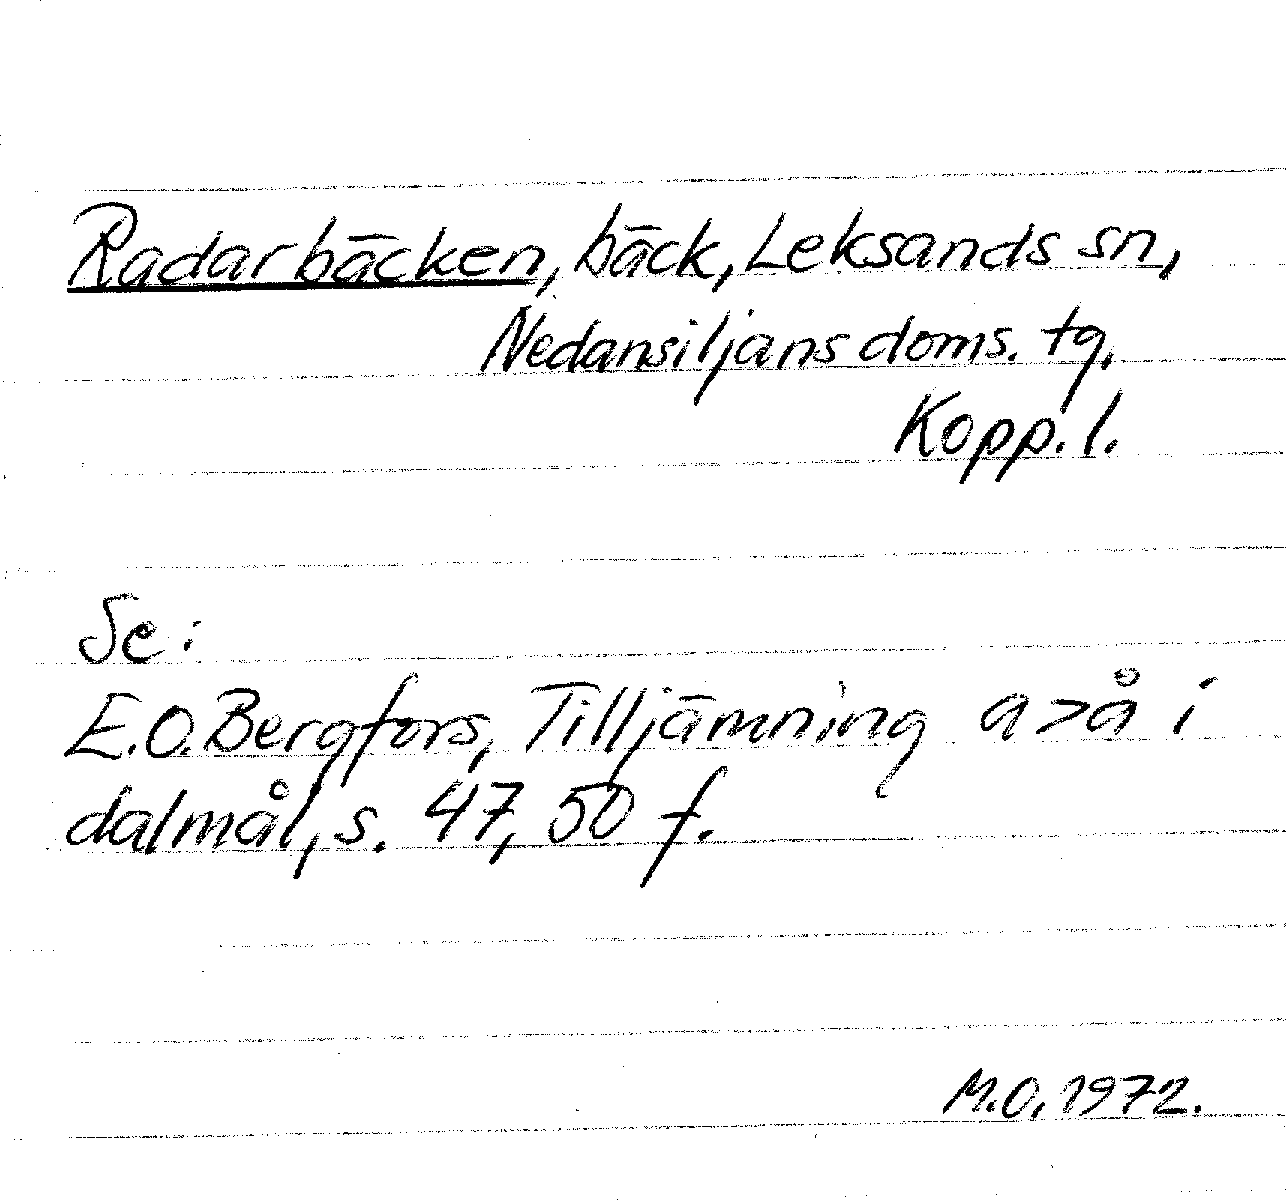 Radarbäcken, bäck, Leksands sn,
Nedansiljans doms. tg.
Kopp. l.
Se:
E.O. Bergfors, Tilljämning a>å i
dalmål, s. 47, 50 f.
M.O. 1972.